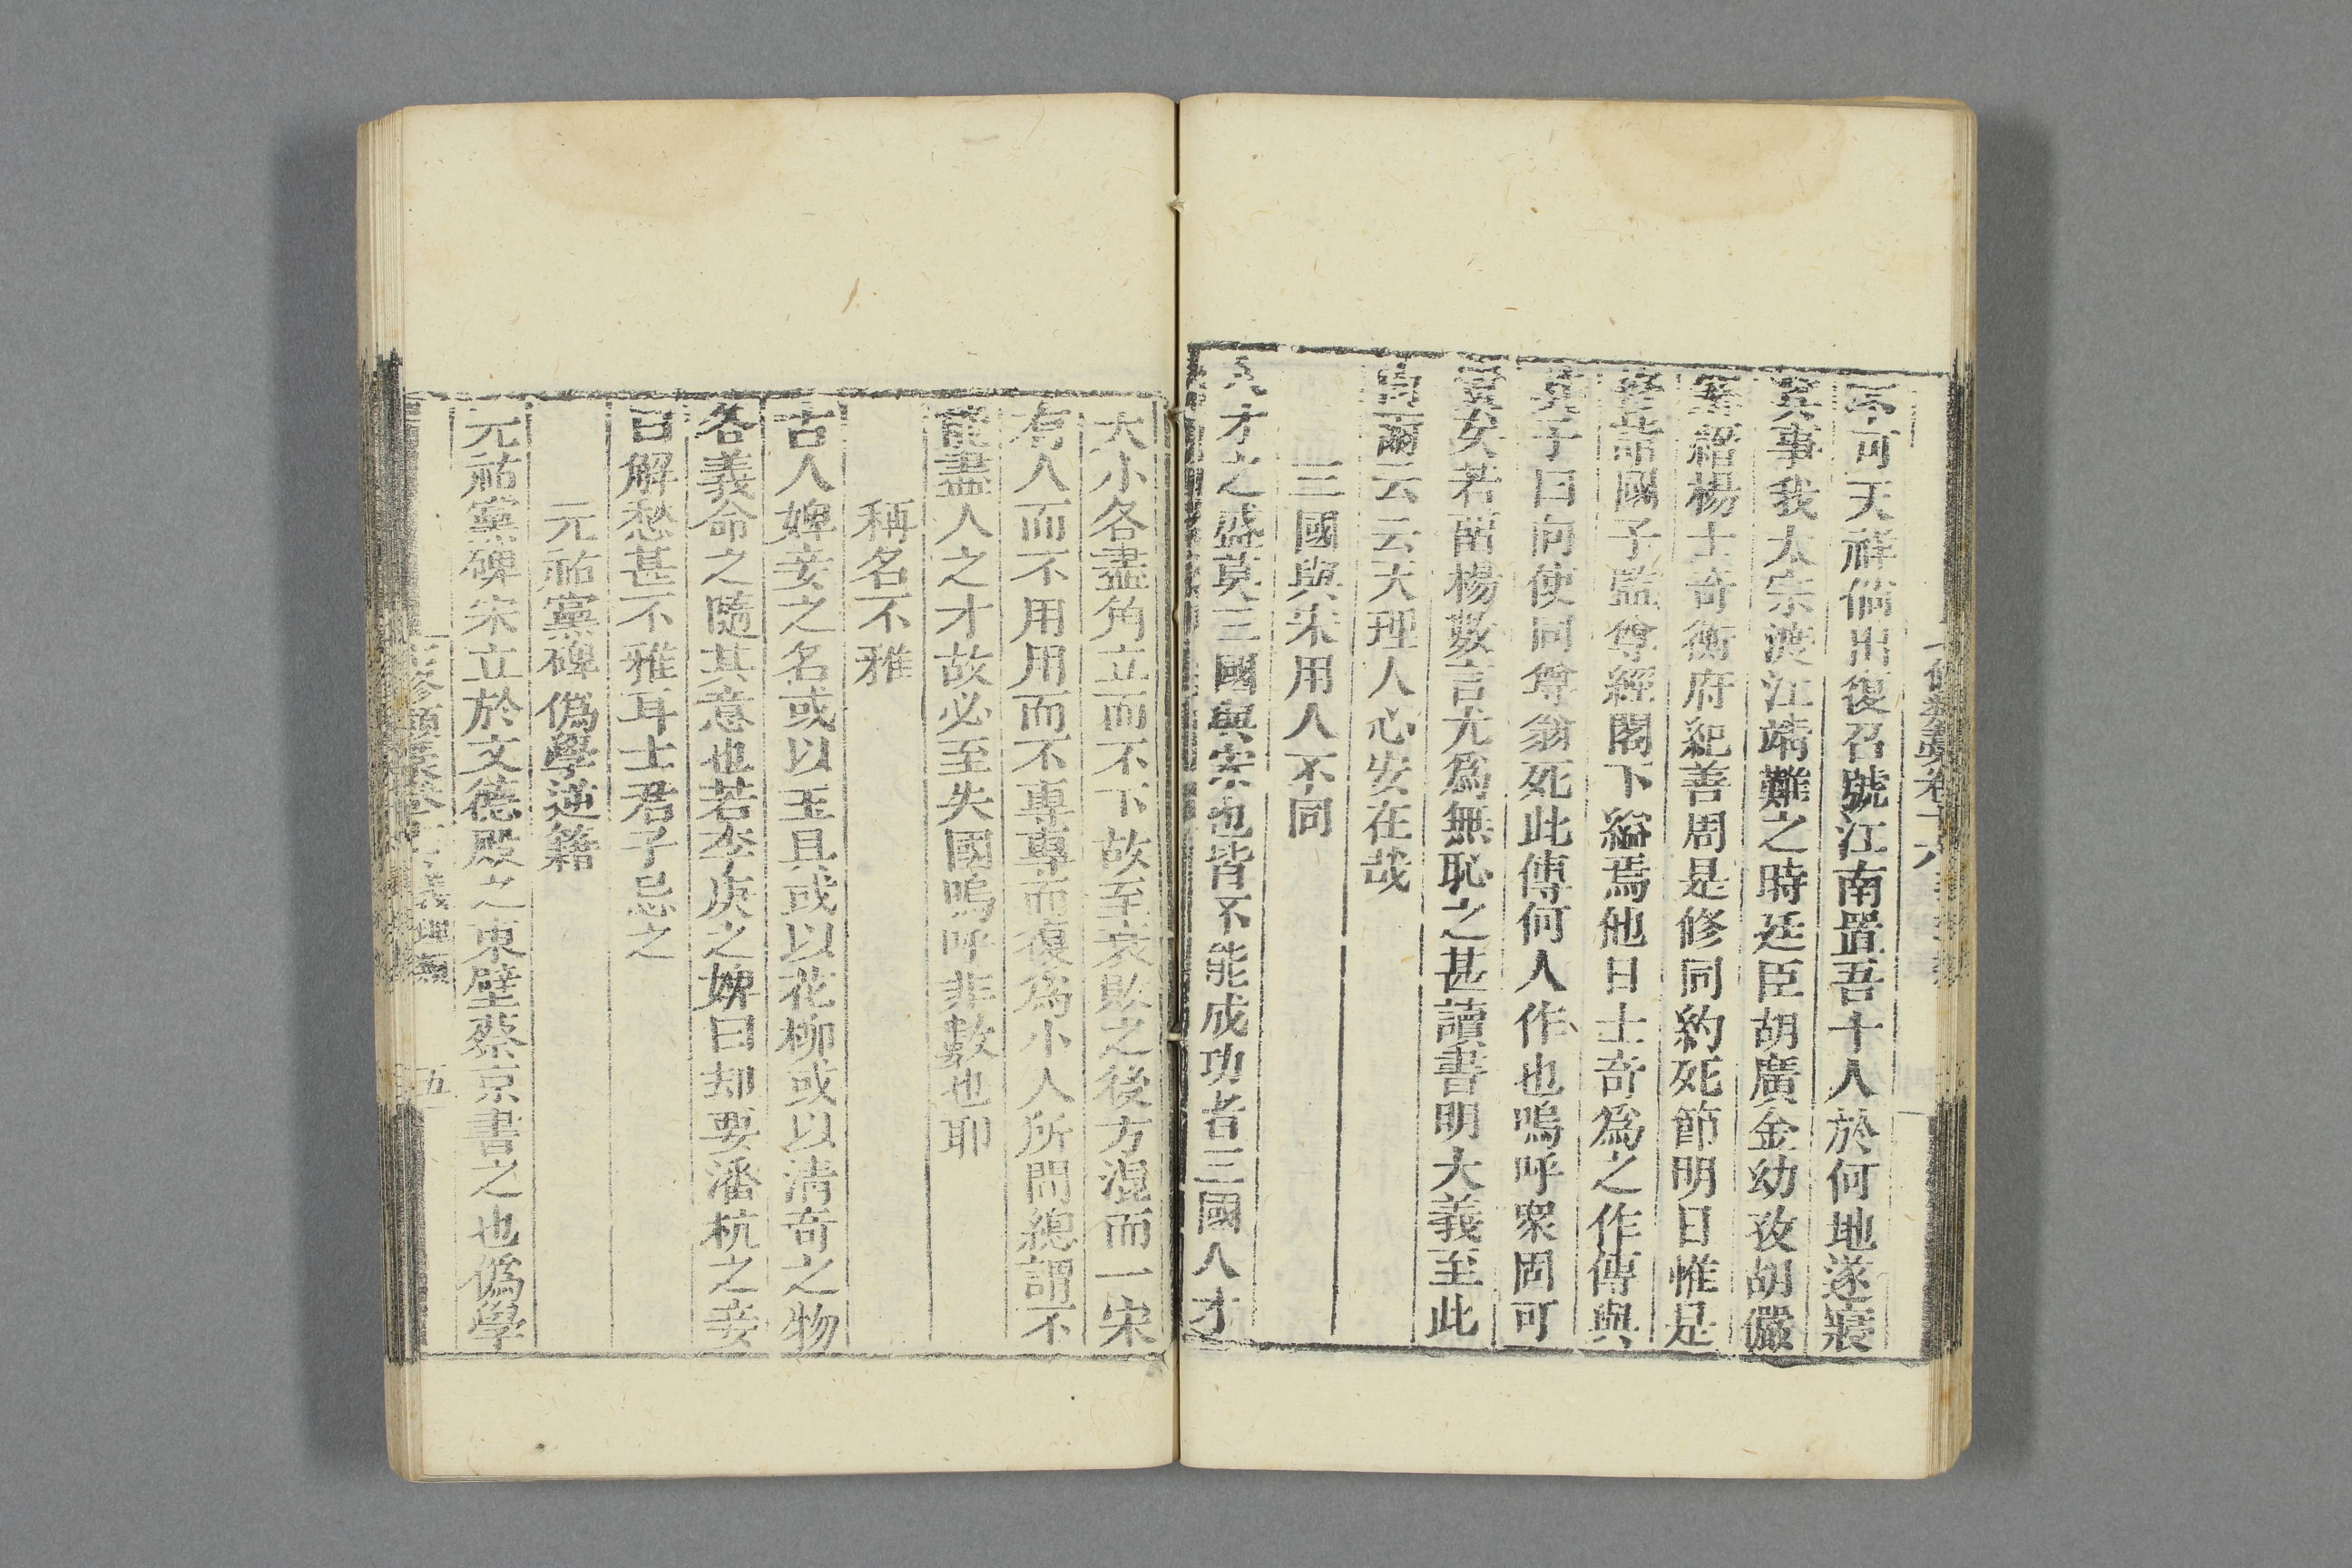 七修類藁卷十六
不可天祥倘出復召號江南置吾十人於何地遂寢
其事我太宗渡江靖難之時廷臣胡廣金幼孜胡儼
解縉楊士奇衡府紀善周是修同約死節明日惟是
修詣國子監尊經閣下縊焉他日士奇為之作傳與
其子曰向使同尊翁死此傳何人作也嗚呼衆固可
罪安若留楊數言尤為無恥之甚讀書明大義至此
尚爾云云天理人心安在哉
三國與宋用人不同
人才之盛莫三國與宋也皆不能成功者三國人才
大小各盡角立而不下故至衰敗之後方混而一宋
有人而不用用而不專專而復為小人所間總謂不
能盡人之才故必至失國嗚呼非數也耶
稱名不雅
古人婢妾之名或以玉具或以花柳或以清奇之物
各義命之隨其意也若李庚之婢曰却要潘杭之妾
曰解愁甚不雅耳士君子忌之
元祐黨碑偽學逆籍
元祐黨碑宋立於文德殿之東壁蔡京書之也偽學
七修類藁卷十六 義理類 五